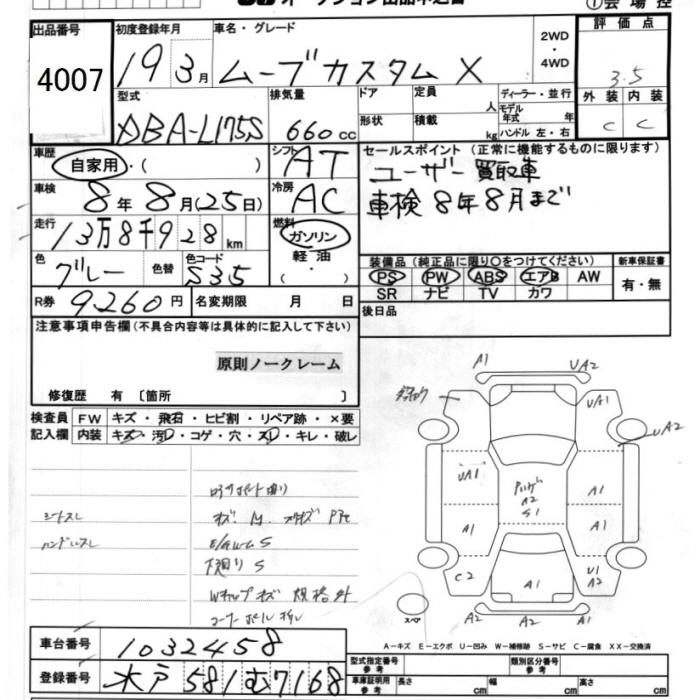 出品番号 初度登録年月 車名・グレード 2WD・4WD 評価点
4007 19 3月 ムーブカスタム X 3.5
型式 排気量 ドア 定員 人 ディーラー・並行 外装 内装
DBA-L175S 660cc 形状 積載 kg モデル年式 年 ハンドル 左・右 C C
車歴 自家用・( ) シフト AT セールスポイント (正常に機能するものに限ります)
ユーザー買取車
車検 8年8月(25日) 冷房 AC 車検8年8月まで
走行 13万8千928km 燃料 ガソリン 軽油 ・( )
装備品 (純正品に限り○をつけてください) 新車保証書
色 グレー 色替 色コード S35 PS PW ABS エアB AW 有・無
SR ナビ TV カワ
R券 9,260円 名変期限 月 日 後日品
注意事項申告欄 (不具合内容等は具体的に記入して下さい)
原則ノークレーム
修復歴 有 〔箇所 〕
検査員 FW キズ・飛石・ヒビ割・リペア跡・×要
記入欄 内装 キズ・汚・コゲ・穴・スレ・キレ・破レ
A1 UA2
UA1
UA2
UA1 A2 S1 A1
シートスレ
A1 A1
ハンドルスレ
E/G S
下廻り S
C2 A1 U1 A2
Wキャップキズ 規格外
スペア A2 A2 A1
A-キズ E-エクボ U-凹み W-補修跡 S-サビ C-腐食 XX-交換済
車台番号 1032458
型式指定番号 参考 類別区分番号 参考
登録番号 水戸 581 む 7168
車庫証明用 参考 長さ cm 幅 cm 高さ cm